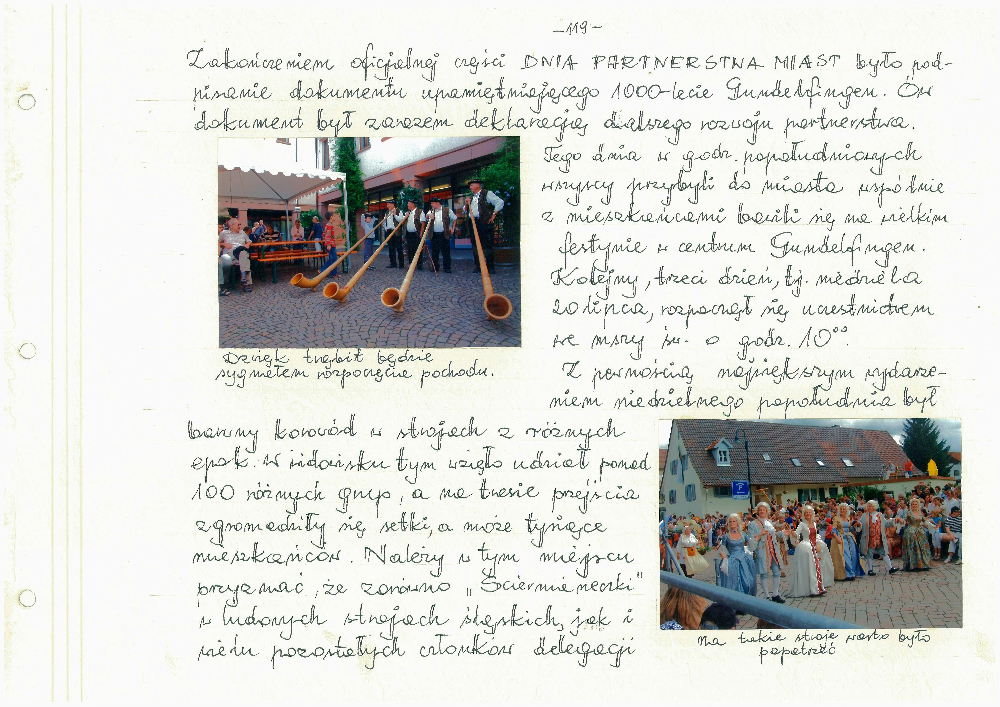 -119-
Zakończeniem oficjalnej części DNIA PARTNERSTWA MIAST było pod-
pisanie dokumentu upamiętniającego 1000-lecie Gundelfingen. Ów
dokument był zarazem deklaracją dalszego rozwoju partnerstwa.
Tego dnia w godz. popołudniowych
wszyscy przybyli do miasta wspólnie
z mieszkańcami bawili się na wielkim
festynie w centrum Gundelfingen.
Kolejny, trzeci dzień, tj. niedziela
20 lipca, rozpoczął się uczestnictwem
we mszy św. o godz. 10°°.
Z pewnością największym wydarze-
niem niedzielnego popołudnia był
Dźwięk trąbit będzie
sygnałem rozpoczęcia pochodu.
barwny korowód w strojach z różnych
epok. W widowisku tym wzięło udział ponad
100 różnych grup, a na trasie przejścia
zgromadziły się setki, a może tysiące
mieszkańców. Należy w tym miejscu
przyznać, że zarówno „Ściernianeczki"
w ludowych strojach śląskich, jak i
wielu pozostałych członków delegacji
Na takie stroje warto było
popatrzeć